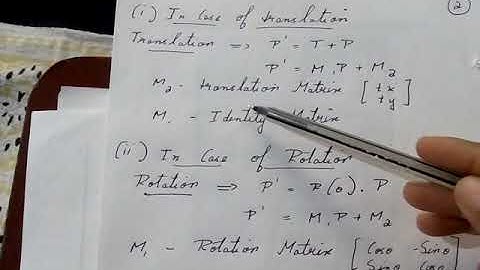 2
(i) In Case of translation
Translation ⇒ P' = T + P
P' = M₁P + M₂
M₂ - translation Matrix [tx
ty]
M₁ - Identity Matrix
(ii) In Case of Rotation
Rotation ⇒ P' = R(θ) . P
P' = M₁P + M₂
M₁ - Rotation Matrix [Cosθ -Sinθ
Sinθ Cosθ